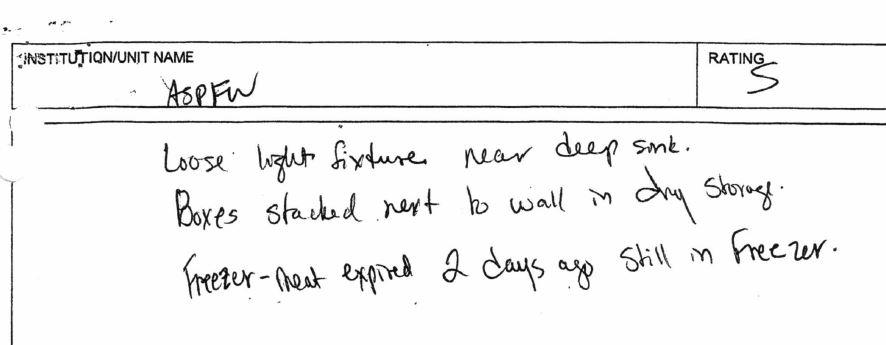 INSTITUTION/UNIT NAME
RATING
ASPFW
S
Loose light fixture near deep sink.
Boxes stacked next to wall in dry storage.
Freezer-meat expired 2 days ago still in freezer.